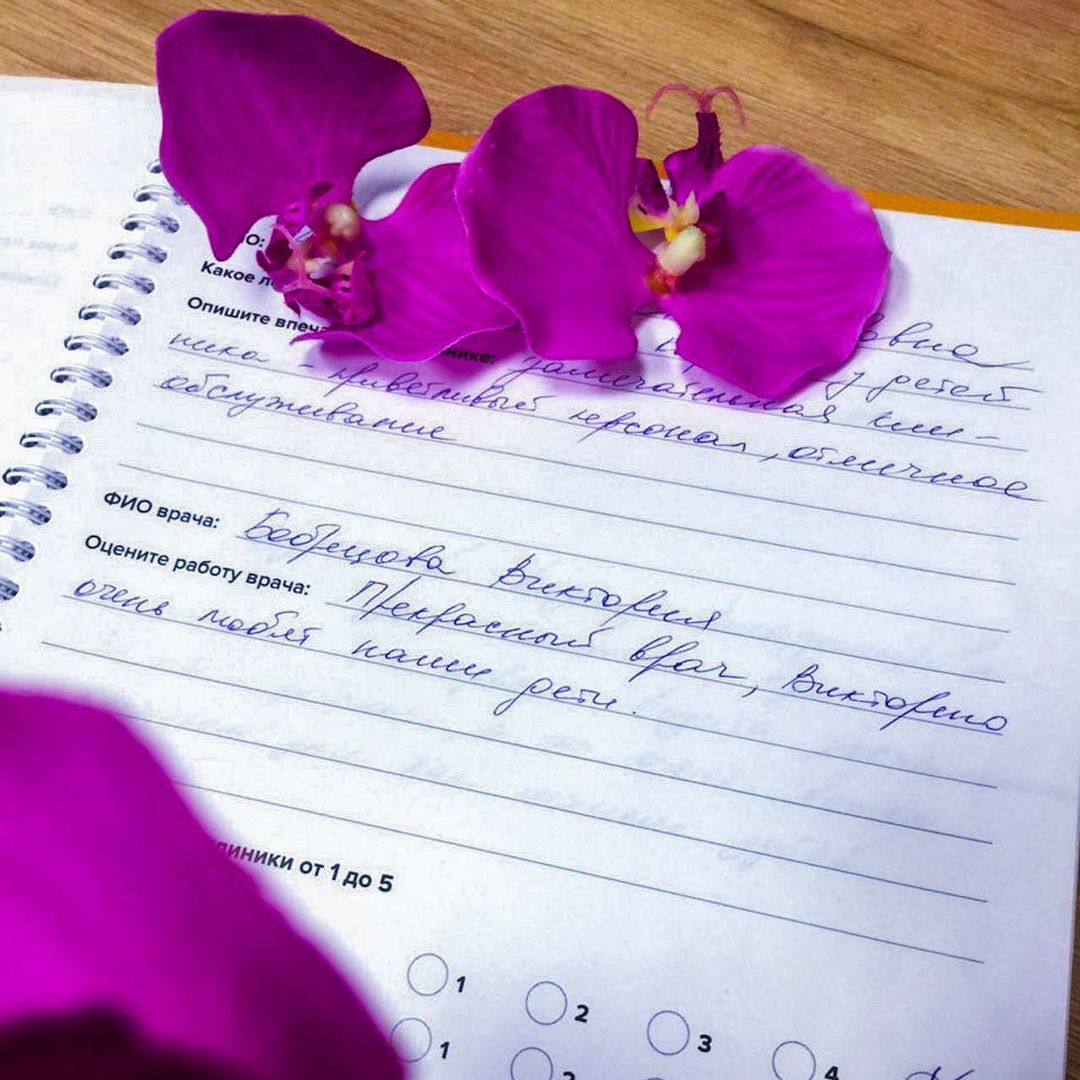 О:
Какое л
Опишите впеч нике: замечательная кли-
ника - приветливый персонал, отличное
обслуживание
ФИО врача: Бобрецова Виктория
Оцените работу врача: Прекрасный врач, Викторию
очень любят наши дети.
линики от 1 до 5
1 2 3 4
1 2